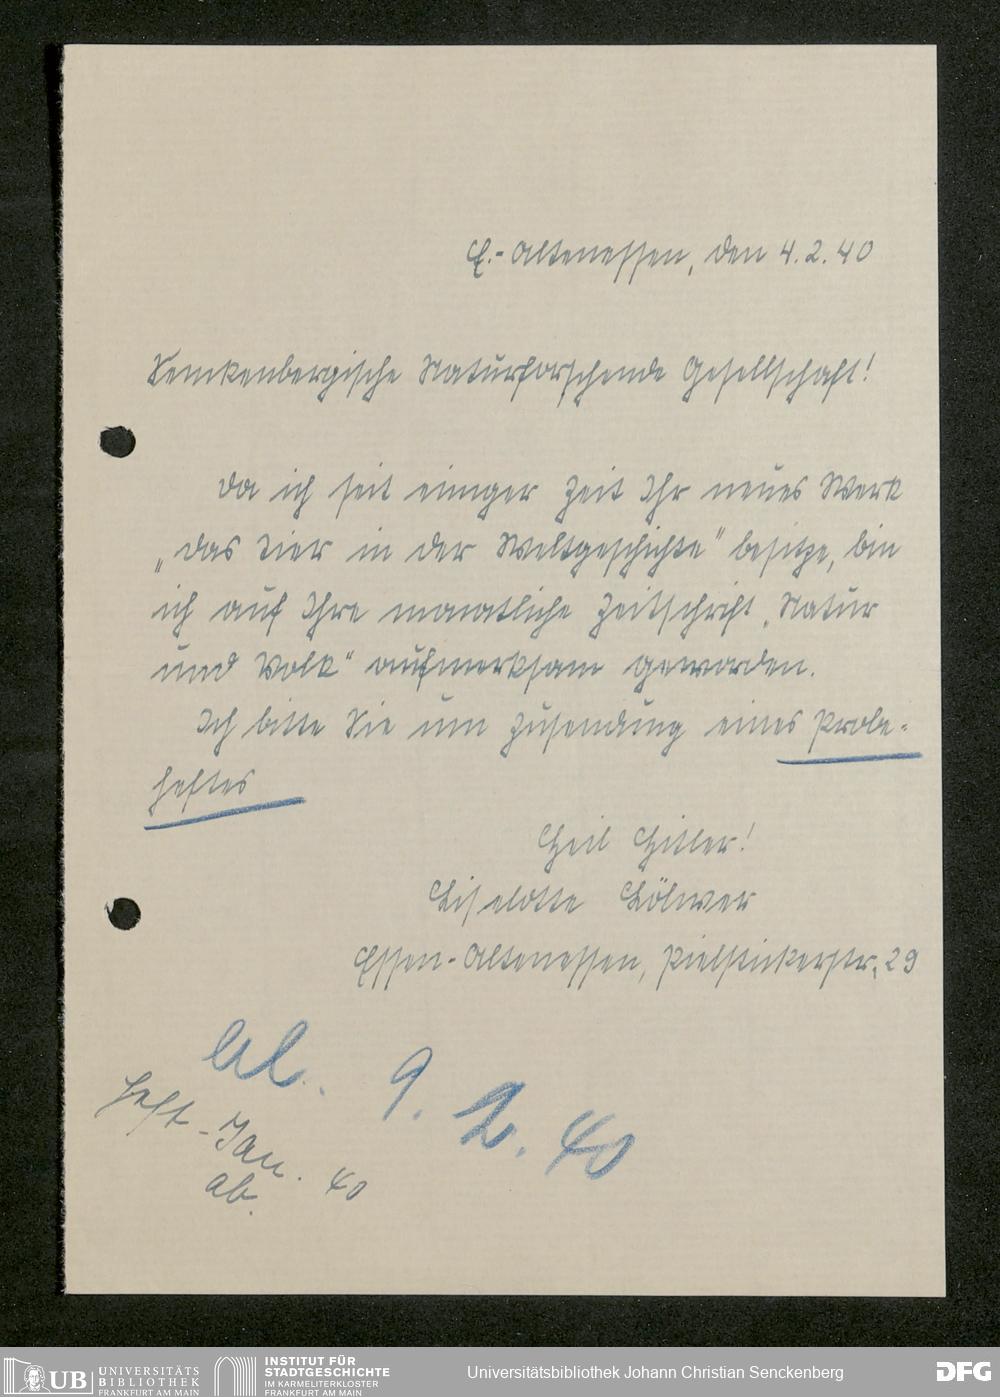 E.-Altenessen, den 4.2.40
Senckenbergische Naturforschende Gesellschaft!
Da ich seit einiger Zeit Ihr neues Werk
„Das Tier in der Weltgeschichte" besitze, bin
ich auf Ihre monatliche Zeitschrift „Natur
und Volk" aufmerksam geworden.
Ich bitte Sie um Zusendung eines Probe-
heftes
Heil Hitler!
Liselotte Lölwer
Essen-Altenessen, Pielstickerstr. 29
9. 2. 40
Heft - Jan. 40
ab.
UB UNIVERSITÄTS
BIBLIOTHEK
FRANKFURT AM MAIN
INSTITUT FÜR
STADTGESCHICHTE
IM KARMELITERKLOSTER
FRANKFURT AM MAIN
Universitätsbibliothek Johann Christian Senckenberg
DFG